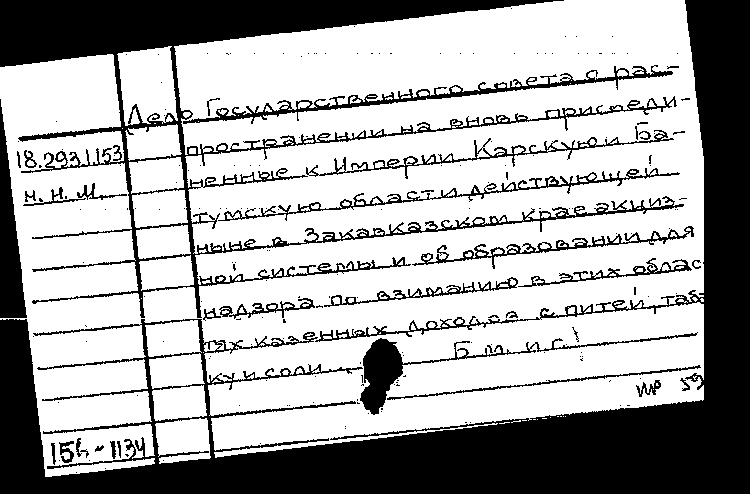 Дело Государственного совета о рас-
18.293.1.153 пространении на вновь присоеди-
н.н.м. ненные к Империи Карскую и Ба-
тумскую области действующей
ныне в Закавказском крае акциз-
ной системы и об образовании для
надзора по взиманию в этих облас
тях казенных доходов с питей, таба
ку и соли...
Б м. и г.
59
15б-1134